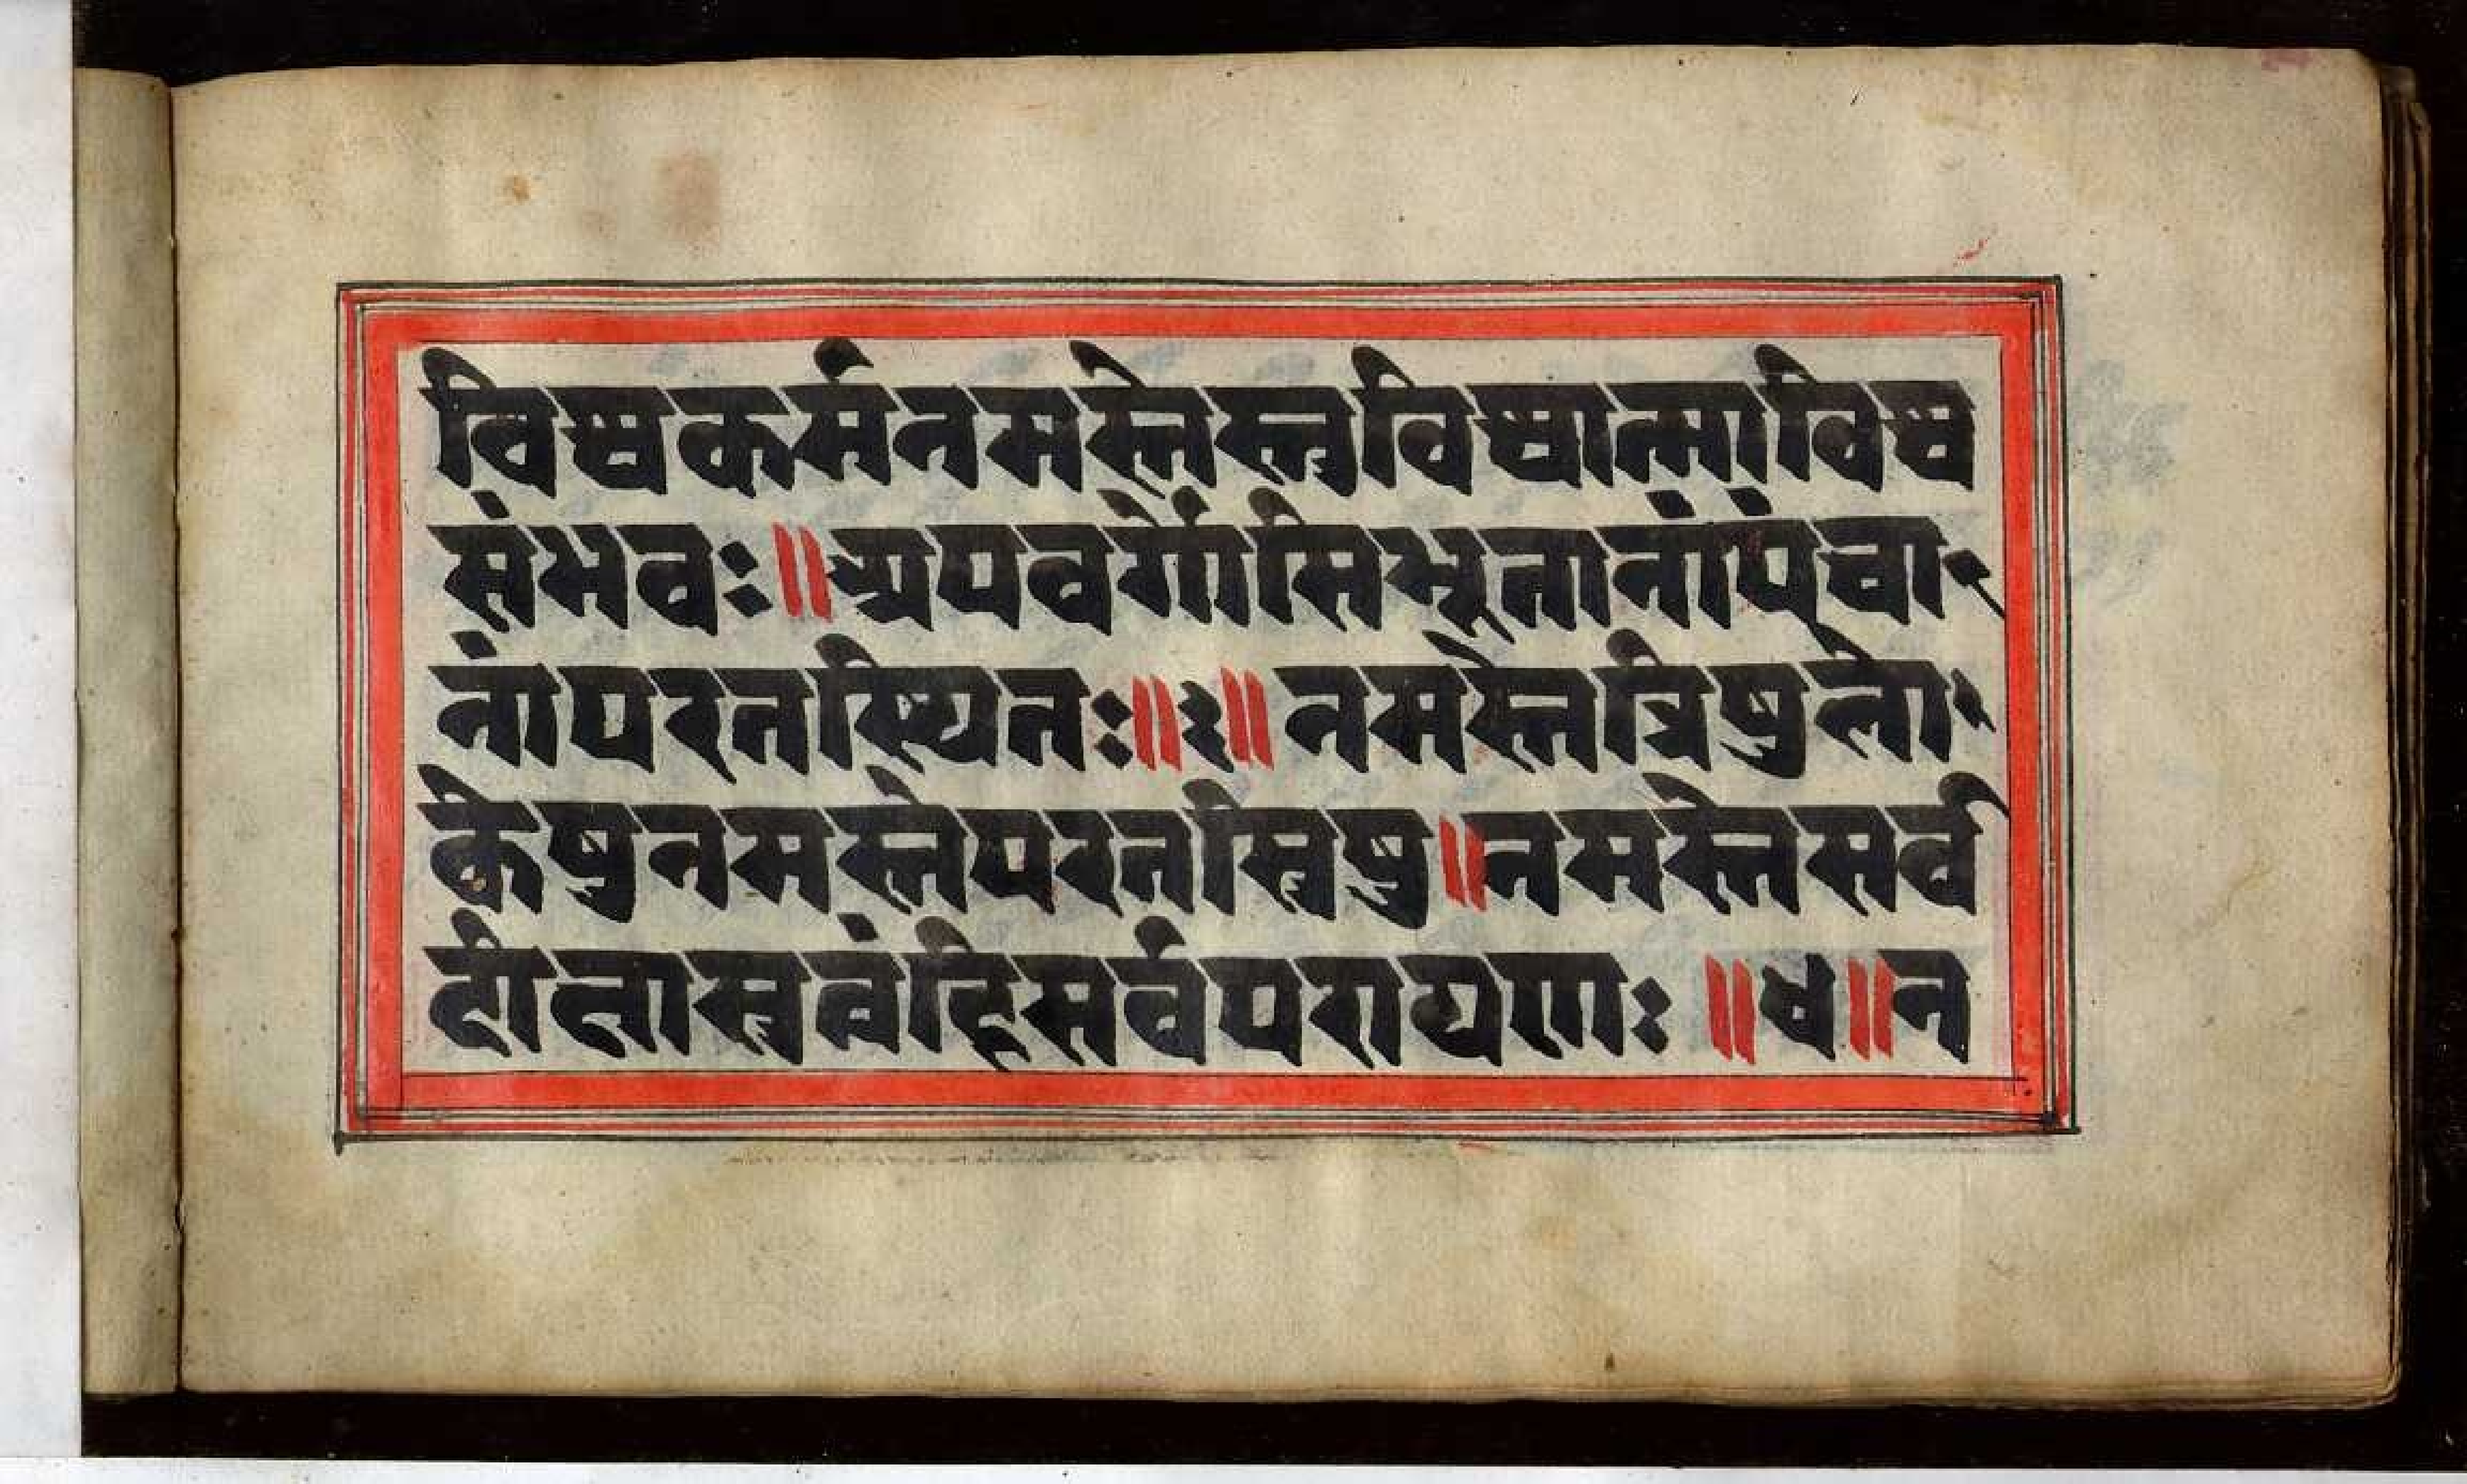 विश्वकर्मनमस्तेस्तुविश्वात्माविश्व
संभवः॥अपवर्गोसिभूतानांपंचा
नांपरतस्थितः॥३॥नमस्तेत्रिषुलो
केषुनमस्तेपरतस्त्रिषु॥नमस्तेसर्व
दीलासुत्वंहिसर्वपरायणः॥४॥न